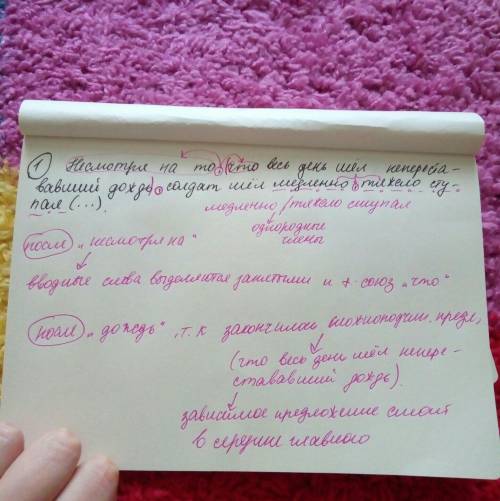 ① Несмотря на то, что весь день шёл непереста-
вавший дождь, солдат шёл медленно, тяжело сту-
пал (...).
медленно / тяжело ступал
однородные
члены
после „несмотря на"
вводные слова выделяются запятыми и + союз „что"
после „дождь", т.к закончилось сложноподчин. предл,
(что весь день шёл непере-
стававший дождь).
зависимое предложение стоит
в середине главного